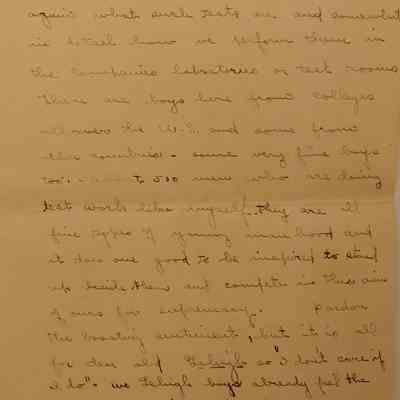 again what such tests are and somewhat
in detail how we perform them in
the Companies laboratories or test rooms
There are boys here from colleges
all over the U.S. and some from
other countries - some very fine boys
too. to 500 men who are doing
test work like myself. They are all
fine types of young manhood and
it does one good to be inspired to stand
up beside them and compete in this aim
of ours for supremacy. Pardon
the boasting sentiment, but it is all
for dear old Lehigh so "I don't care if
I do". We Lehigh boys already feel the